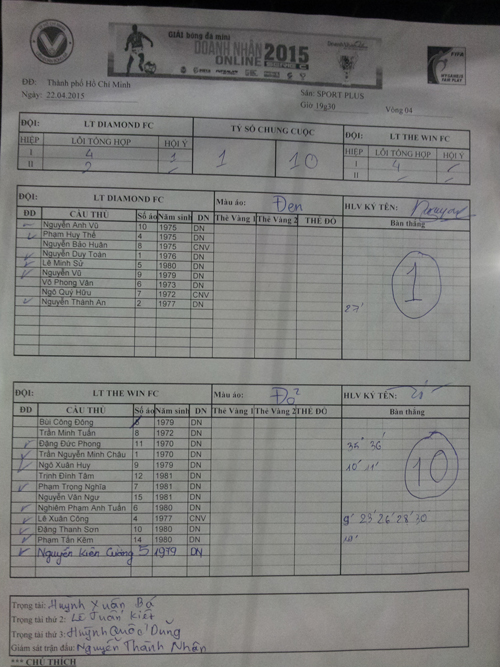 GIẢI bóng đá mini
DOANH NHÂN 2015
ONLINE
FIFA
MY GAME IS FAIR PLAY
ĐĐ: Thành phố Hồ Chí Minh
Ngày: 22.04.2015
Sân: SPORT PLUS
Giờ 19g30 Vòng 04
ĐỘI: LT DIAMOND FC TỶ SỐ CHUNG CUỘC ĐỘI: LT THE WIN FC
HIỆP LỖI TỔNG HỢP HỘI Ý 1 10 HIỆP LỖI TỔNG HỢP HỘI Ý
I 4 1 I 4
II 2 II
ĐỘI: LT DIAMOND FC Màu áo: Đen HLV KÝ TÊN:
ĐD CẦU THỦ Số áo Năm sinh DN Thẻ Vàng 1 Thẻ Vàng 2 THẺ ĐỎ Bàn thắng
Nguyễn Anh Vũ 10 1975 DN
Phạm Huy Thê 4 1975 DN
Nguyễn Bảo Huân 8 1975 CNV
Nguyễn Duy Toàn 1 1976 DN
Lê Minh Sử 5 1980 DN
Nguyễn Vũ 9 1979 DN
Võ Phong Vân 6 1973 DN
Ngô Quý Hữu 7 1972 CNV
Nguyễn Thành An 2 1977 DN
1
27'
ĐỘI: LT THE WIN FC Màu áo: Đỏ HLV KÝ TÊN:
ĐD CẦU THỦ Số áo Năm sinh DN Thẻ Vàng 1 Thẻ Vàng 2 THẺ ĐỎ Bàn thắng
Bùi Công Đông 1979 DN
Trần Minh Tuấn 8 1972 DN
Đặng Đức Phong 11 1970 DN 35' 36'
Trần Nguyễn Minh Châu 1 1970 DN
Ngô Xuân Huy 9 1979 DN 10' 11'
Trịnh Đình Tâm 12 1981 DN
Phạm Trọng Nghĩa 7 1981 DN
Nguyễn Văn Ngư 15 1981 DN
Nghiêm Phạm Anh Tuấn 6 1980 DN
Lê Xuân Công 4 1977 CNV 9' 23' 26' 28' 30
Đặng Thanh Sơn 10 1980 DN
Phạm Tấn Kêm 14 1980 DN
Nguyễn Kiên Cường 5 1979 DN
10
Trọng tài: Huỳnh Xuân Bá
Trọng tài thứ 2: Lê Tuấn Kiệt
Trọng tài thứ 3: Huỳnh Quốc Dũng
Giám sát trận đấu: Nguyễn Thành Nhân
*** CHÚ THÍCH